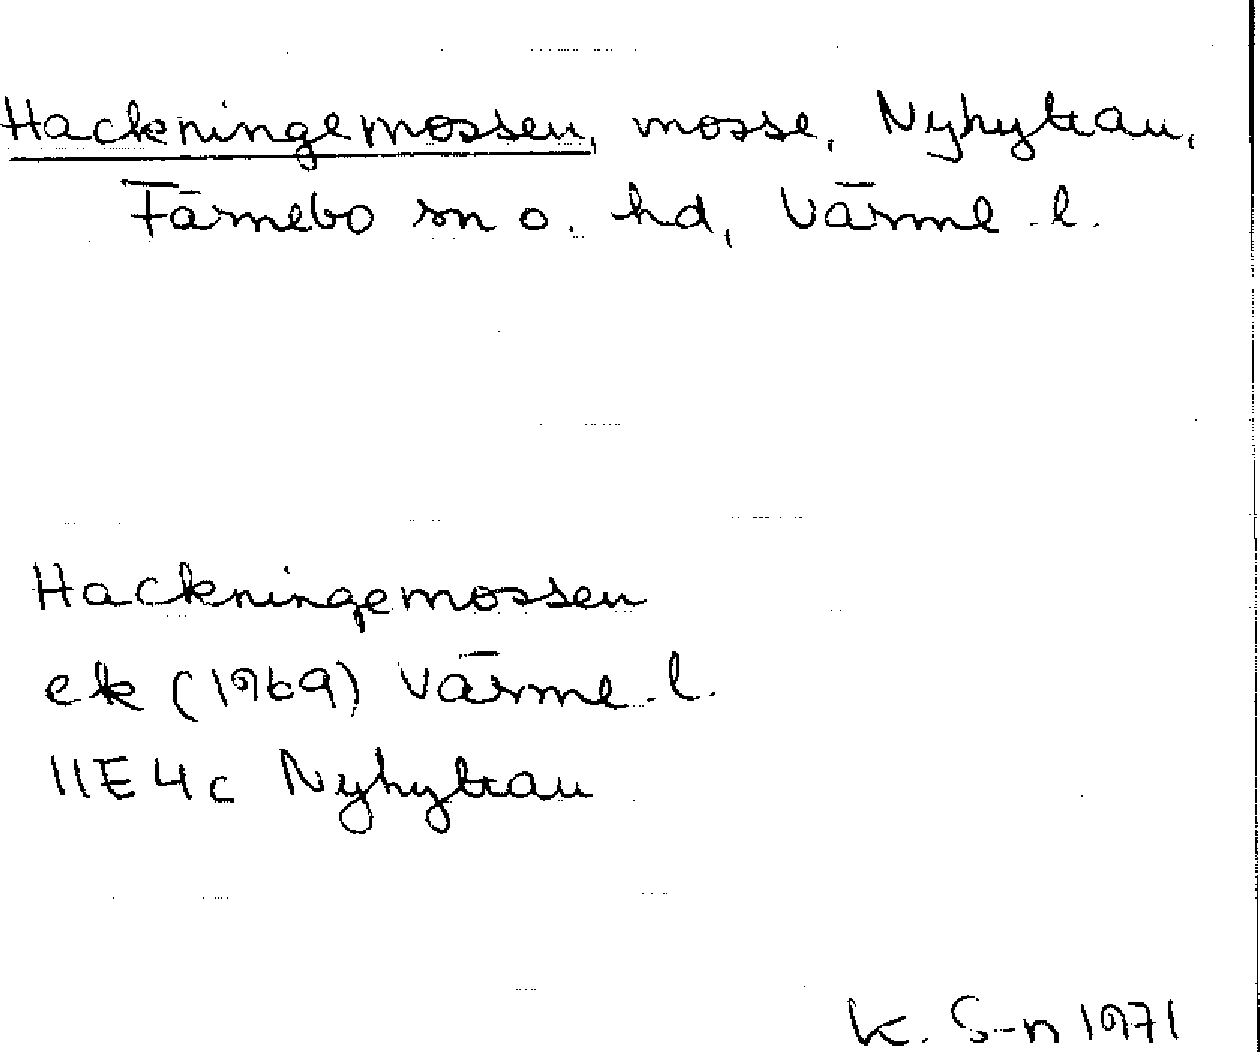 Hackningemossen, mosse, Nyhyttan,
Färnebo sn o. hd, Värml. l.
Hackningemossen
ek (1969) Värml. l.
11E4c Nyhyttan
K. S-n 1971